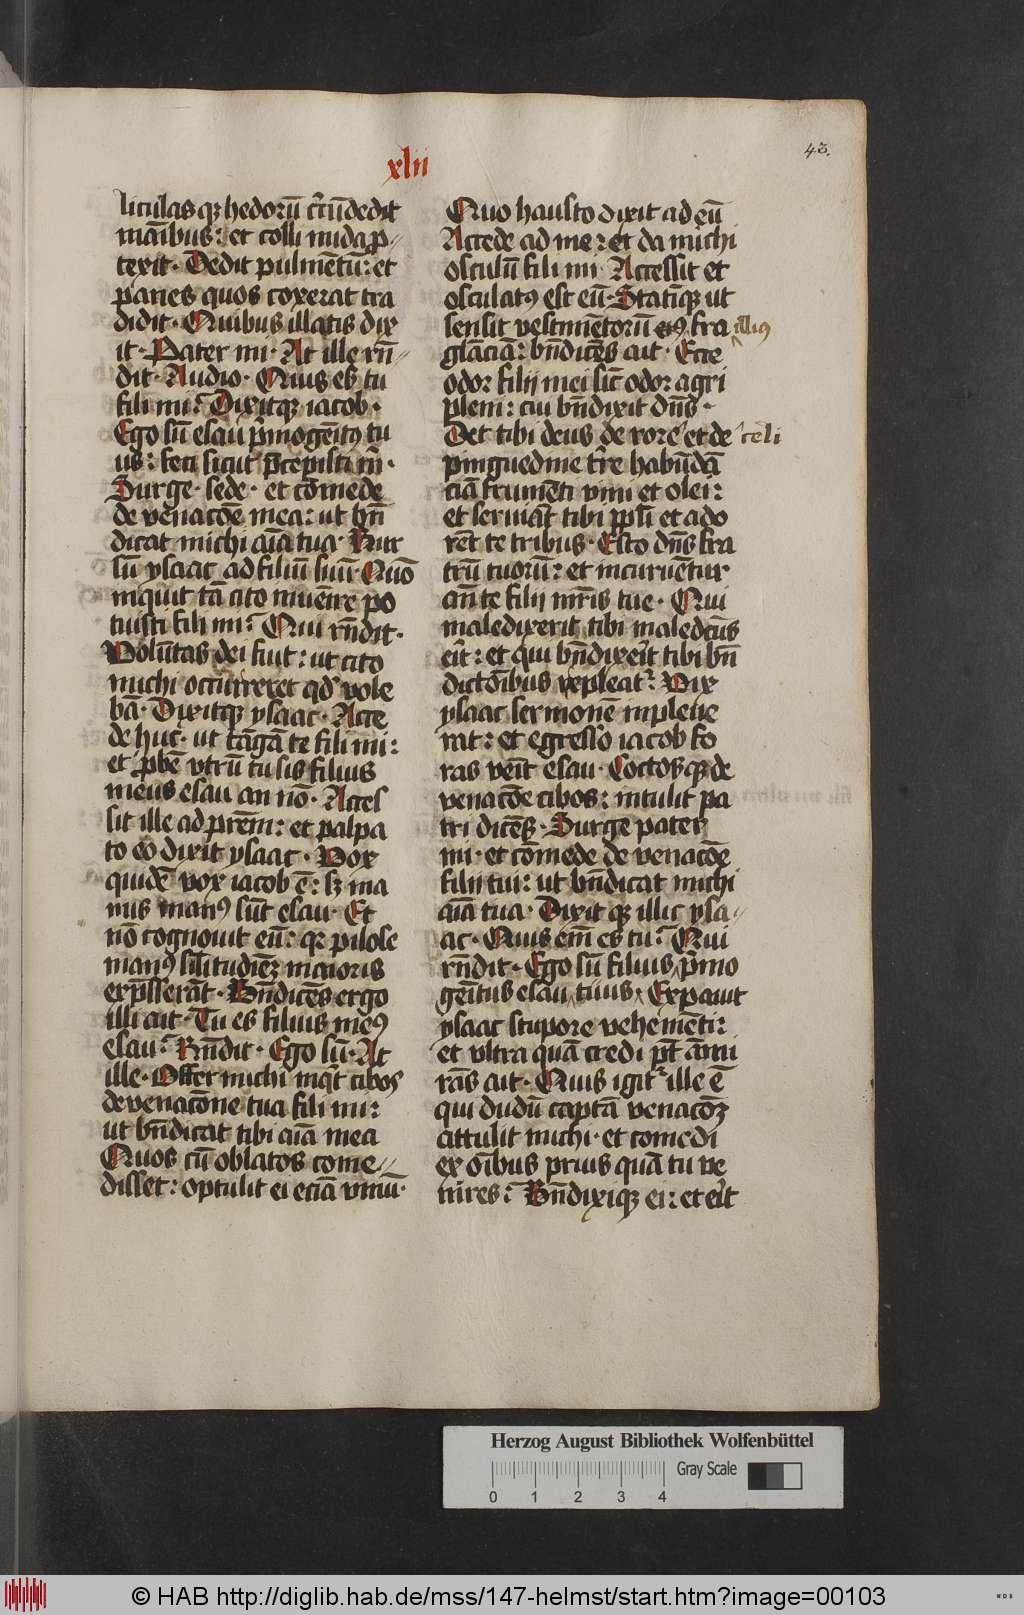 xlii
43.
liculasqꝫ hedorū cʳcūdedit
manibus: et colli nuda p̲-
texit. Dedit pulmētū: et
panes quos coxerat tra
didit. Quibus illatis dix
it. Pater mi. At ille rn̄-
dit. Audio. Quis es tu
fili mi? Dixitqꝫ iacob.
Ego sū esau p̄mogēitꝰ tu
us: feci sicut p̄cepisti m̄.
Surge. sede. et cōmede
de venacōe mea: ut bn̄
dicat michi aīa tua. Rur
sū ysaac ad filiū suū. Quō
inquit tā cito inuēire po
tuisti fili mi? Qui rn̄dit.
Volūtas dei fuit: ut cito
michi occurreret qd̛ vole
bā. Dixitqꝫ ysaac. Acce
de huc. ut tāgā te fili mi:
et ꝓbē vtrū tu sis filius
meus esau an nō. Acces
sit ille ad prēm: et palpa
to eo dixit ysaac. Vox
quidē vox iacob ē: sꝫ ma
nus manꝰ sūt esau. Et
nō cognouit eū: qꝛ pilose
manꝰ sīlitudiēꝫ maioris
exp̄sserāt. Bn̄dicēs ergo
illi ait. Tu es filius meꝰ
esau? Rn̄dit. Ego sū. At
ille. Offer michi inqt̄ cibos
de venacōne tua fili mi:
ut bn̄dicat tibi aīa mea
Quos cū oblatos come-
disset: optulit ei eciā vinū.
Quo hausto dixit ad eū
Accede ad me: et da michi
osculū fili mi. Accessit et
osculatꝰ est eū. Statīqꝫ ut
sensit vestimētorū eiꝰ fra illiꝰ
glāciā: bn̄dicēs ait. Ecce
odor filij mei sic̄ odor agri
pleni: cui bn̄dixit dn̄s.
Det tibi deus de rore et de celi
pinguedine tr̄e habūdā
ciā frumēti vini et olei:
et seruiāt tibi ppl̄i et ado
rēt te tribus. Esto dn̄s fra
trū tuorū: et incuruētur
an̄ te filij mr̄is tue. Qui
maledixerit tibi maledc̄us
er̄it: et qui bn̄dixer̄it tibi bn̄
dictōibus repleatʳ. Vix
ysaac sermonē inpleue
rat: et egresso iacob fo
ras ven̄it esau. Coctosqꝫ de
venacōe cibos: intulit pa
tri dicēs. Surge pater
mi. et cōmede de venacōe
filij tui: ut bn̄dicat michi
aīa tua. Dixit qꝫ illic ysa-
ac. Quis em̄ es tu? Qui
rn̄dit. Ego sū filius p̄mo
gēitus esau tuus. Expauit
ysaac stupore vehemēti:
et vltra quā credi pt̄ āmi
rās ait. Quis igitʳ ille ē
qui dudū captā venacōꝫ
attulit michi. et comedi
ex ōibus prius quā tu ve
nires? Bn̄dixiqꝫ ei: et er̄it
Herzog August Bibliothek Wolfenbüttel
Gray Scale
0 1 2 3 4
© HAB http://diglib.hab.de/mss/147-helmst/start.htm?image=00103